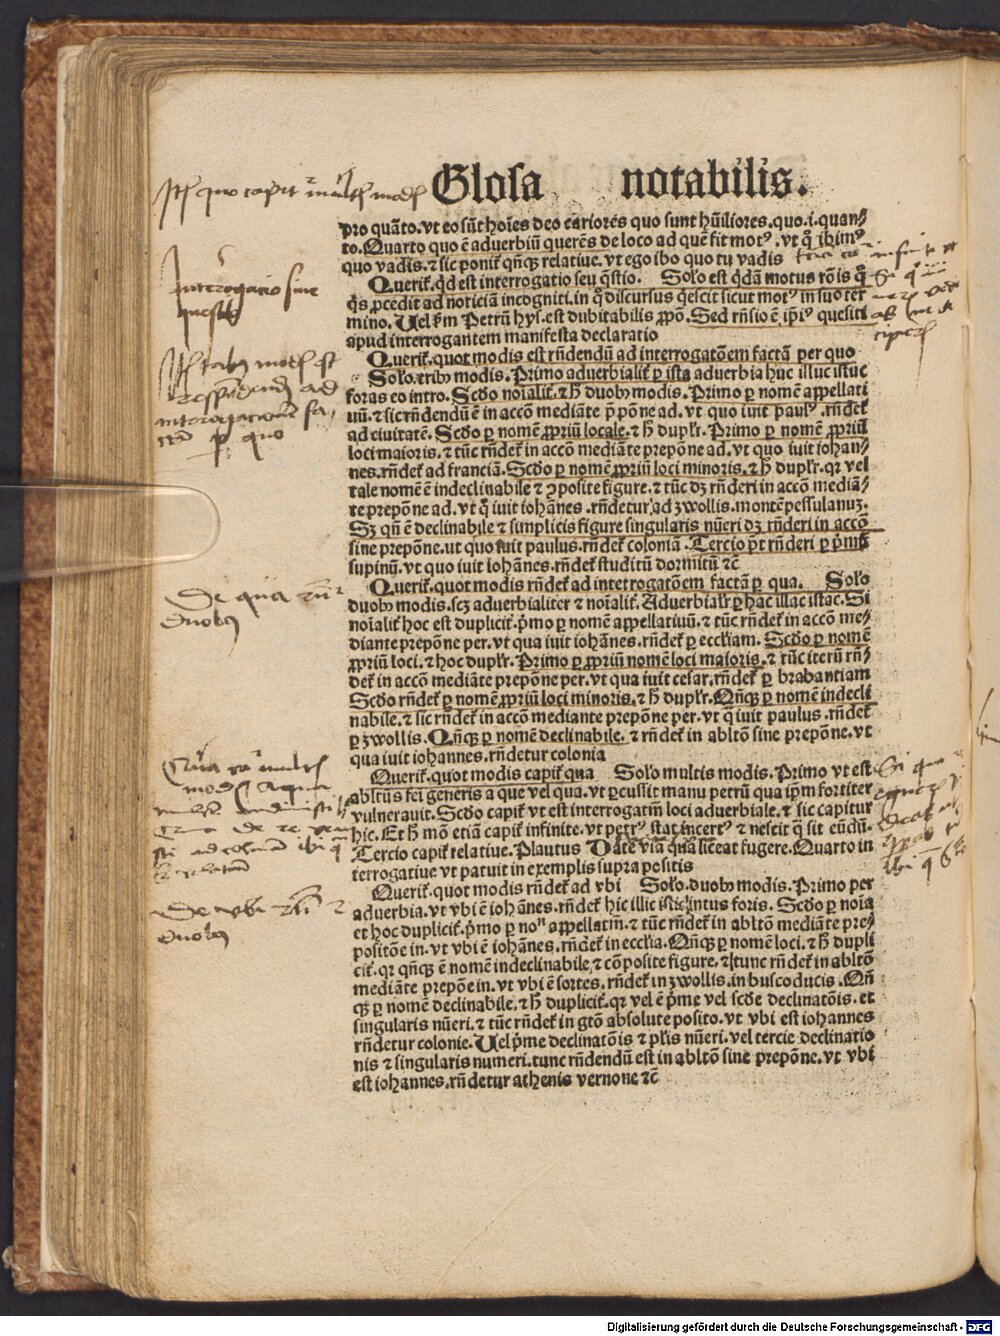 Glosa notabilis.
pro quāto. vt eo sūt hoīes deo cariores quo sunt hūiliores. quo. i. quan⸗
to. Quarto quo ē aduerbiū querēs de loco ad quē fit motꝰ. vt q̊ ibimꝰ
quo vadis. ⁊ sic poniť qn̄qꝫ relatiue. vt ego ibo quo tu vadis
Queriť. qd est interrogatio seu q̄stio. Solo est q̄dā motus rōis q̊
q̄s ꝓcedit ad noticiā incogniti. in q̊ discursus q̄escit sicut motꝰ in suo ter
mino. Uel ẜm Petrū hys. est dubitabilis ꝓpō. Sed rn̄sio ē ip̄iꝰ quesiti
apud interrogantem manifesta declaratio
Queriť. quot modis est rn̄dendū ad interrogatōem factā per quo
Solo. tribꝫ modis. Primo aduerbialiť ꝑ ista aduerbia huc illuc istuc
foras eo intro. Scdo noīaliť. ⁊ h̄ duobꝫ modis. Primo ꝑ nomē appellati
uū. ⁊ sic rn̄dendū ē in accō mediāte p̄pōne ad. vt quo iuit paulꝰ. rn̄deť
ad ciuitatē. Scdo ꝑ nomē ꝓpriū locale. ⁊ h̄ duplr̄. Primo ꝑ nomē ꝓpriū
loci maioris. ⁊ tūc rn̄deť in accō mediāte prepōne ad. vt quo iuit iohan⸗
nes. rn̄deť ad franciā. Scdo ꝑ nomē ꝓpriū loci minoris. ⁊ h̄ duplr̄. qꝛ vel
tale nomē ē indeclinabile ⁊ ꝯposite figure. ⁊ tūc dꝫ rn̄deri in accō mediā⸗
te prepōne ad. vt q̊ iuit iohānes. rn̄detur ad zwollis. montēpessulanuꝫ.
Sꝫ qn̄ ē declinabile ⁊ simplicis figure singularis nūeri dꝫ rn̄deri in accō
sine prepōne. ut quo iuit paulus. rn̄deť coloniā. Tercio pt̄ rn̄deri ꝑ p̄mū
supinū. vt quo iuit iohānes. rn̄deť studitū dormitū ⁊c̄
Queriť. quot modis rn̄deť ad interrogatōem factā ꝑ qua. Solo
duobꝫ modis. scꝫ aduerbialiter ⁊ noīaliť. Aduerbialr̄ ꝑ hac illac istac. Si
noīaliť hoc est dupliciť. p̄mo ꝑ nomē appellatiuū. ⁊ tūc rn̄deť in accō me⸗
diante prepōne per. vt qua iuit iohānes. rn̄deť ꝑ eccliam. Scdo ꝑ nomē
ꝓpriū loci. ⁊ hoc duplr̄. Primo ꝑ ꝓpriū nomē loci maioris. ⁊ tūc iterū rn̄⸗
deť in accō mediāte prepōne per. vt qua iuit cesar. rn̄deť ꝑ brabantiam
Scdo rn̄deť ꝑ nomē ꝓpriū loci minoris. ⁊ h̄ duplr̄. Qn̄qꝫ ꝑ nomē indecli
nabile. ⁊ sic rn̄deť in accō mediante prepōne per. vt q̄ iuit paulus. rn̄deť
ꝑ zwollis. Qn̄qꝫ ꝑ nomē declinabile. ⁊ rn̄deť in ablto sine prepōne. vt
qua iuit iohannes. rn̄detur colonia
Queriť. quot modis capiť qua Solo multis modis. Primo vt est
abltūs fei generis a que vel qua. vt ꝑcussit manu petrū qua ip̄m fortiter
vulnerauit. Scdo capiť vt est interrogatiū loci aduerbiale. ⁊ sic capitur
hic. Et h̄ mō etiā capiť infinite. vt petrꝰ stat incertꝰ ⁊ nescit q̄ sit eūdū.
Tercio capiť relatiue. Plautus Date viā qua liceat fugere. Quarto in
terrogatiue vt patuit in exemplis supra positis
Queriť. quot modis rn̄deť ad vbi Solo. duobꝫ modis. Primo per
aduerbia. vt vbi ē iohānes. rn̄deť hic illic istic intus foris. Scdo ꝑ noīa
et hoc dupliciť. p̄mo ꝑ noⁿ appellatiū. ⁊ tūc rn̄deť in ablto mediāte pre⸗
positōe in. vt vbi ē iohānes. rn̄deť in ecclia. Qn̄qꝫ ꝑ nomē loci. ⁊ h̄ dupli
ciť. qꝛ qn̄qꝫ ē nomē indeclinabile, ⁊ cōposite figure. ⁊ tunc rn̄deť in ablto
mediāte prepōne in. vt vbi ē sortes. rn̄deť in zwollis. in buscoducis. Qn̄
qꝫ ꝑ nomē declinabile. ⁊ h̄ dupliciť. qꝛ vel ē p̄me vel scde declinatōis. et
singularis nūeri. ⁊ tūc rn̄deť in gtō absolute posito. vt vbi est iohannes
rn̄detur colonie. Uel p̄me declinatōis ⁊ plīs nūeri. vel tercie declinatio
nis ⁊ singularis numeri. tunc rn̄dendū est in ablto sine prepōne. vt vbi
est iohannes. rn̄detur athenis vernone ⁊c̄
Interrogacio siue
questio
respondendum ad
interrogacionem fa⸗
ctam per quo
De qua
duobꝫ
De vbi
duobꝫ
Digitalisierung gefördert durch die Deutsche Forschungsgemeinschaft - DFG